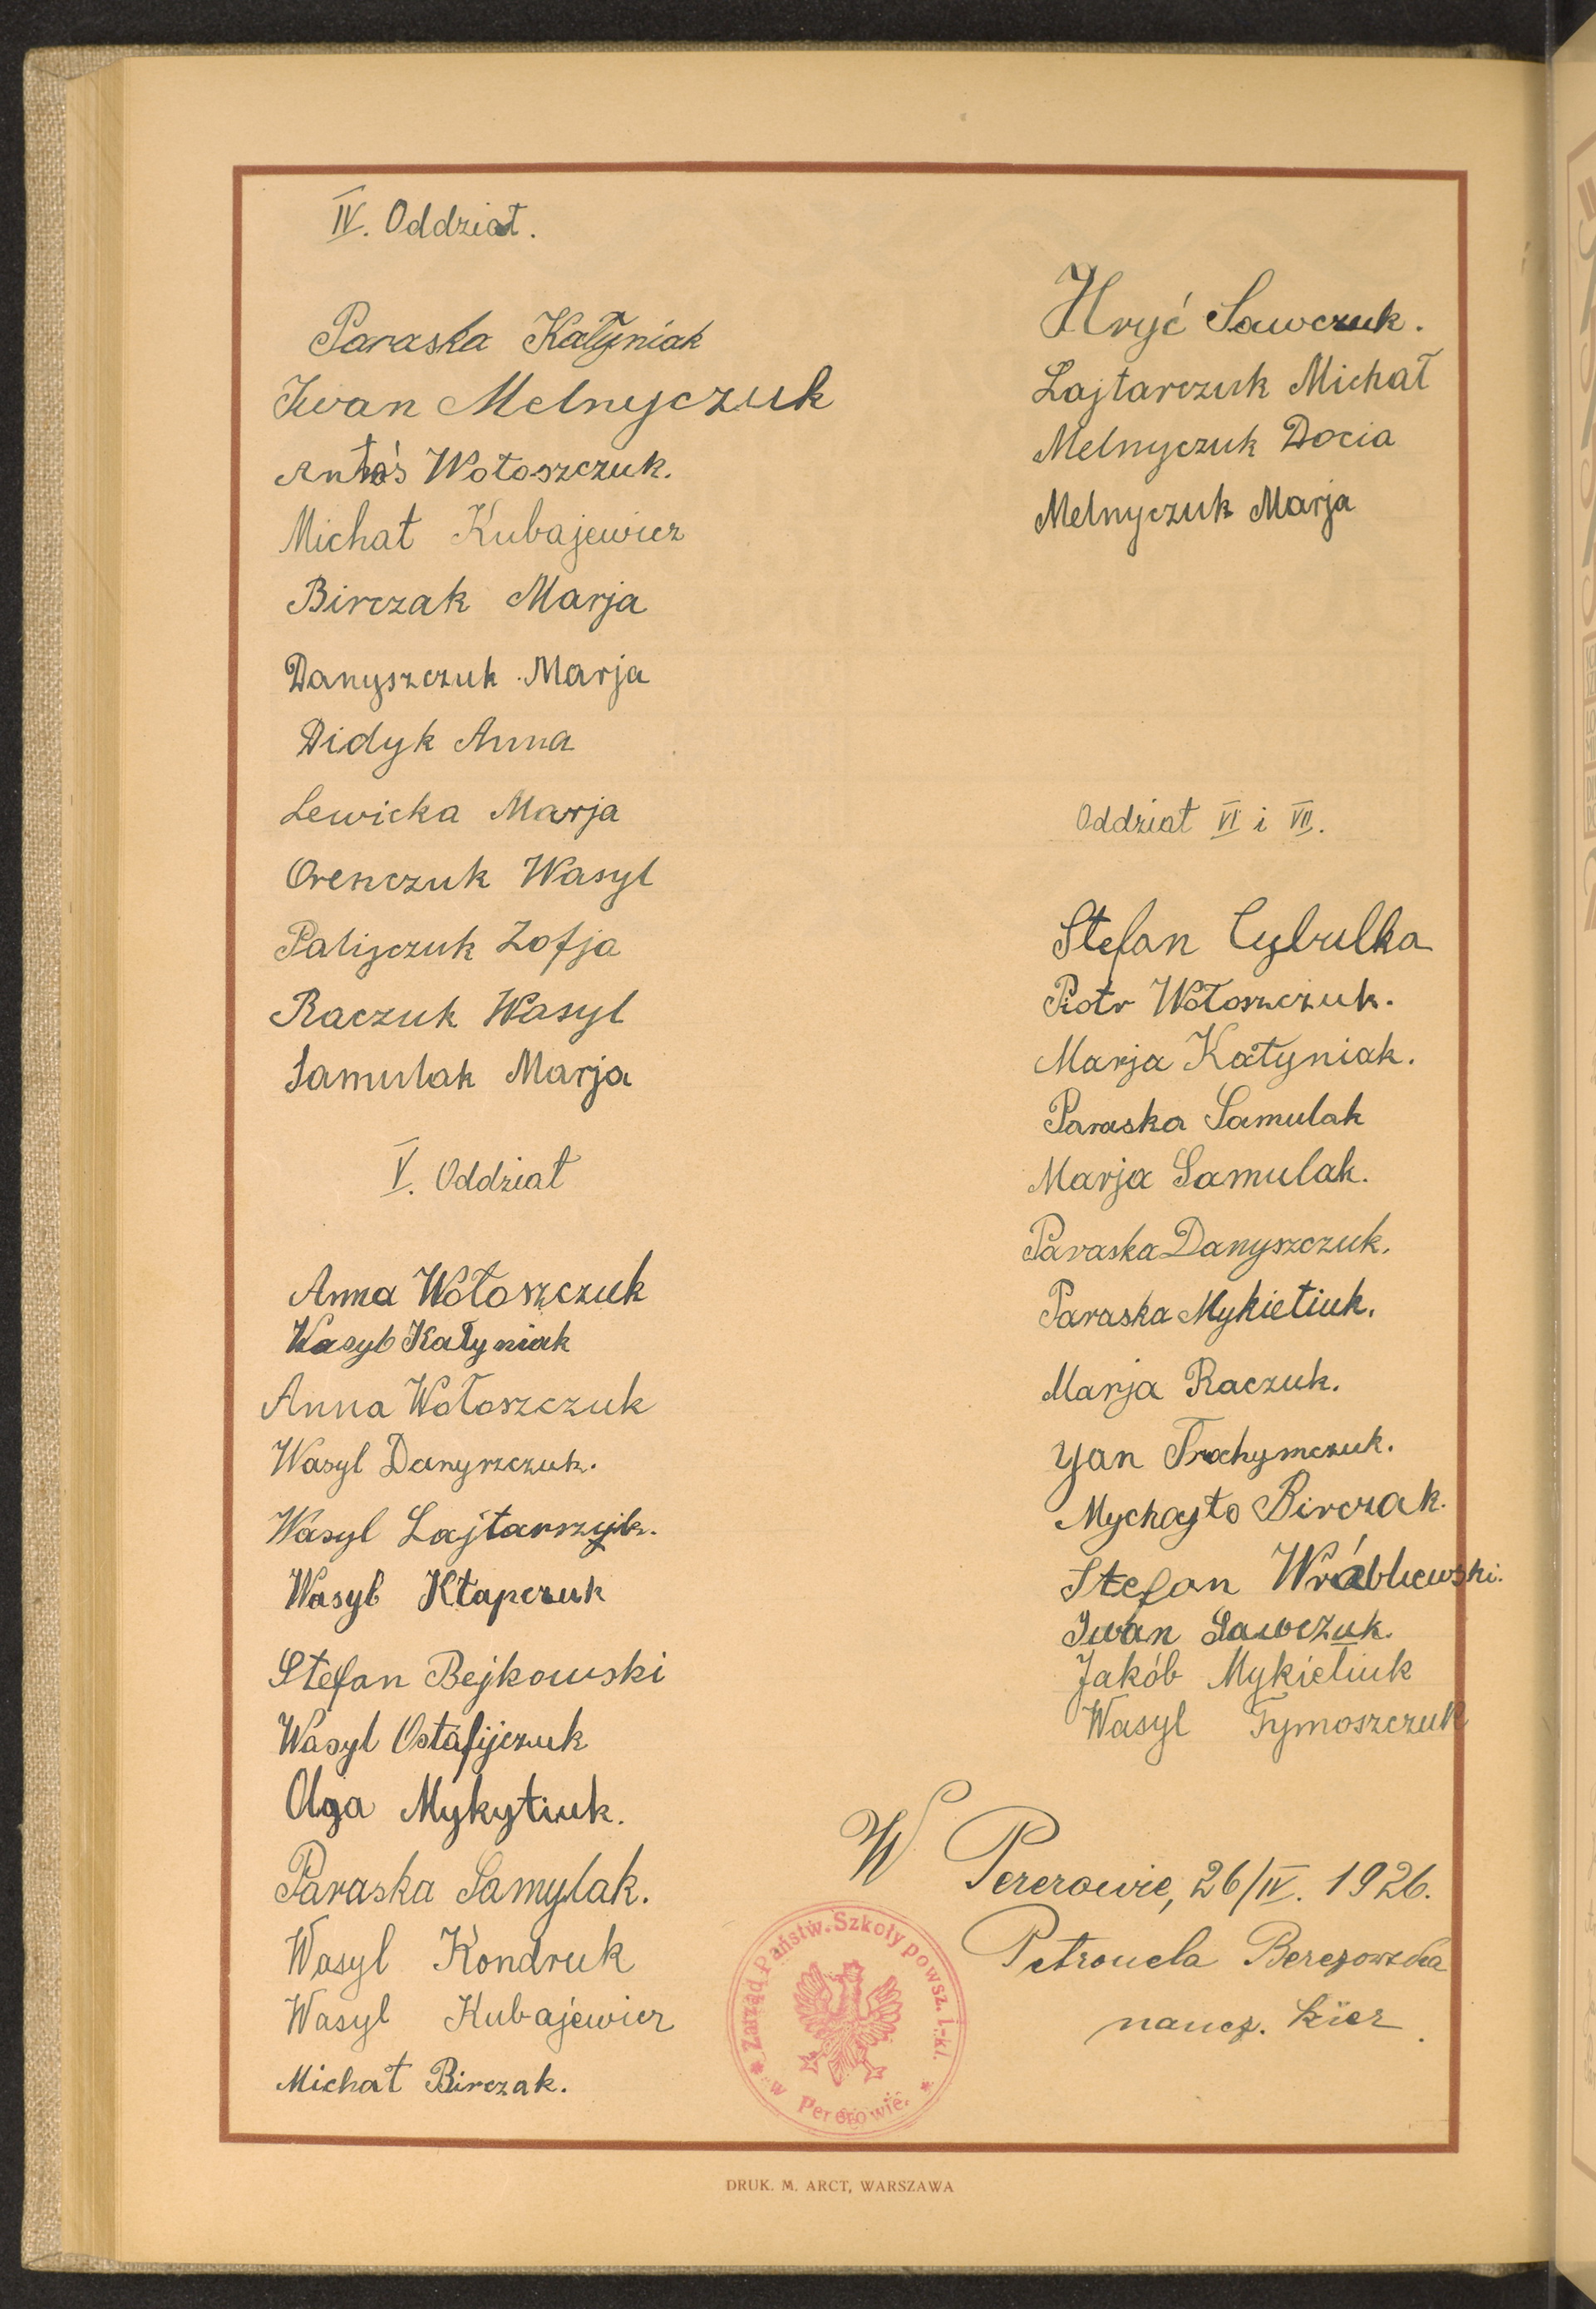 IV. Oddział.
Paraska Kałyniak
Iwan Melnyczuk
Antoś Wołoszczuk.
Michał Kubajewicz
Birczak Marja
Danyszczuk Marja
Didyk Anna
Lewicka Marja
Orenczuk Wasyl
Palijczuk Zofja
Raczuk Wasyl
Samulak Marja
V. Oddział
Anna Wołoszczuk
Wasyl Kałyniak
Anna Wołoszczuk
Wasyl Danyszczuk.
Wasyl Lajtarczuk.
Wasyl Kłapczuk
Stefan Bejkowski
Wasyl Ostafijczuk
Olga Mykytiuk.
Paraska Samylak.
Wasyl Kondruk
Wasyl Kubajewicz
Michał Birczak.
Hryć Sawczuk.
Lajtarczuk Michał
Melnyczuk Docia
Melnyczuk Marja
Oddział VI i VII.
Stefan Cybulka
Piotr Wołoszczuk.
Marja Kałyniak.
Paraska Samulak
Marja Samulak.
Paraska Danyszczuk.
Paraska Mykietiuk.
Marja Raczuk.
Yan Trochymczuk.
Mychajło Birczak.
Stefan Wróblewski.
Iwan Sawczuk.
Jakób Mykietiuk
Wasyl Tymoszczuk
W Pererowie, 26/IV. 1926.
Petronela Berezowska
naucz. kier.
* Zarząd Państw. Szkoły powsz. 1-kl. *
w Pererowie.
DRUK. M. ARCT, WARSZAWA